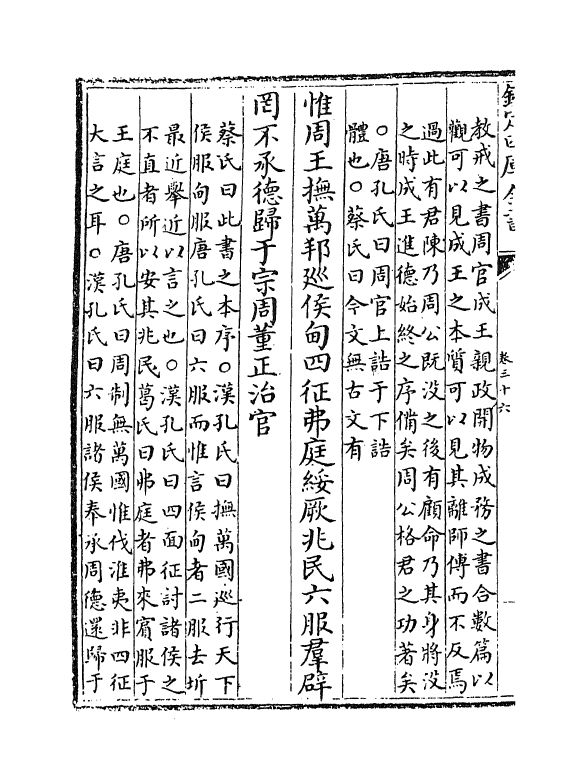 欽定四庫全書
卷三十六
教戒之書周官成王親政開物成務之書合數篇以
觀可以見成王之本質可以見其離師傅而不反焉
過此有君陳乃周公既没之後有顧命乃其身將没
之時成王進德始終之序備矣周公格君之功著矣
○唐孔氏曰周官上誥于下誥
體也○蔡氏曰今文無古文有
惟周王撫萬邦廵侯甸四征弗庭綏厥兆民六服羣辟
罔不承德歸于宗周董正治官
蔡氏曰此書之本序○漢孔氏曰撫萬國巡行天下
侯服甸服唐孔氏曰六服而惟言侯甸者二服去圻
最近舉近以言之也○漢孔氏曰四面征討諸侯之
不直者所以安其兆民葛氏曰弗庭者弗來賔服于
王庭也○唐孔氏曰周制無萬國惟伐淮夷非四征
大言之耳○漢孔氏曰六服諸侯奉承周德還歸于